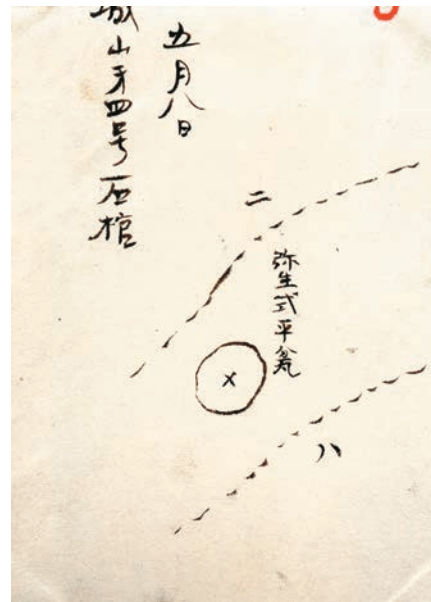 五月八日
城山才四号石棺
二
弥生式平瓮
ハ